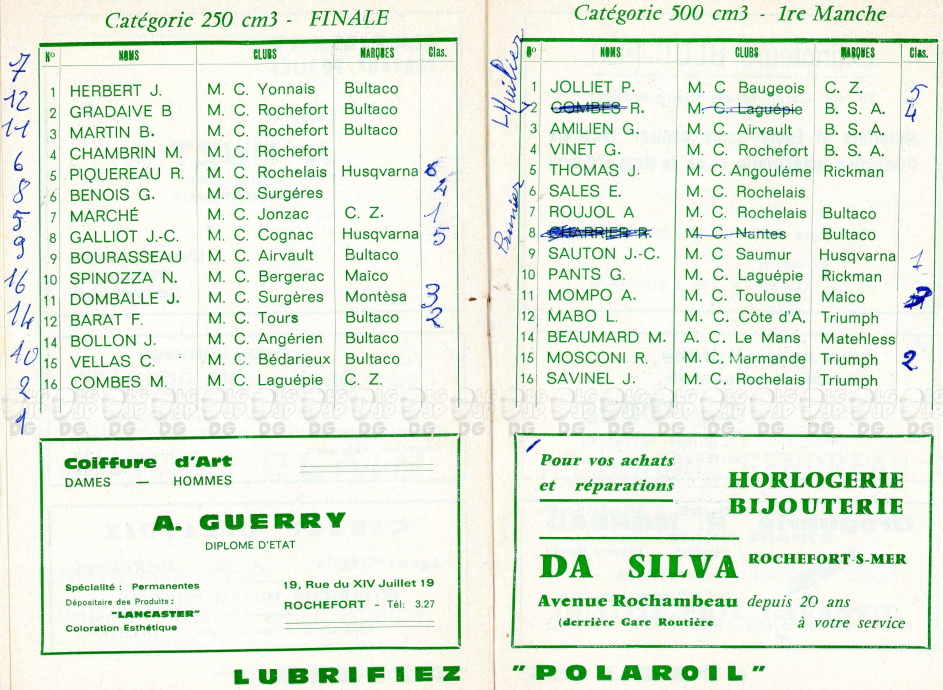 Catégorie 250 cm3 - FINALE
Nº NOMS CLUBS MARQUES Clas.
7
12
11
6
8
5
9
16
14
10
2
1
1 HERBERT J. M. C. Yonnais Bultaco
2 GRADAIVE B M. C. Rochefort Bultaco
3 MARTIN B. M. C. Rochefort Bultaco
4 CHAMBRIN M. M. C. Rochefort
5 PIQUEREAU R. M. C. Rochelais Husqvarna 6
6 BENOIS G. M. C. Surgéres 4
7 MARCHÉ M. C. Jonzac C. Z. 1
8 GALLIOT J.-C. M. C. Cognac Husqvarna 5
9 BOURASSEAU M. C. Airvault Bultaco
10 SPINOZZA N. M. C. Bergerac Maïco
11 DOMBALLE J. M. C. Surgères Montèsa 3
12 BARAT F. M. C. Tours Bultaco 2
14 BOLLON J. M. C. Angérien Bultaco
15 VELLAS C. M. C. Bédarieux Bultaco
16 COMBES M. M. C. Laguépie C. Z.
Coiffure d'Art
DAMES — HOMMES
A. GUERRY
DIPLOME D'ETAT
Spécialité : Permanentes
Dépositaire des Produits :
"LANCASTER"
Coloration Esthétique
19, Rue du XIV Juillet 19
ROCHEFORT - Tél: 3.27
LUBRIFIEZ
Catégorie 500 cm3 - 1re Manche
Nº NOMS CLUBS MARQUES Clas.
L'Huilier
1 JOLLIET P. M. C. Baugeois C. Z. 5
2 COMBES R. M. C. Laguépie B. S. A. 4
3 AMILIEN G. M. C. Airvault B. S. A.
4 VINET G. M. C. Rocefort B. S. A.
5 THOMAS J. M. C. Angouléme Rickman
6 SALES E. M. C. Rochelais
7 ROUJOL A M. C. Rochelais Bultaco
8 CHARRIER R. M. C. Nantes Bultaco
9 SAUTON J.-C. M. C Saumur Husqvarna 1
10 PANTS G. M. C. Laguépie Rickman
11 MOMPO A. M. C. Toulouse Maïco
12 MABO L. M. C. Côte d'A. Triumph
14 BEAUMARD M. A. C. Le Mans Matehless
15 MOSCONI R. M. C. Marmande Triumph 2
16 SAVINEL J. M. C. Rochelais Triumph
Pour vos achats
et réparations
HORLOGERIE
BIJOUTERIE
DA SILVA
ROCHEFORT-S-MER
Avenue Rochambeau
(derrière Gare Routière
depuis 20 ans
à votre service
"POLAROIL"